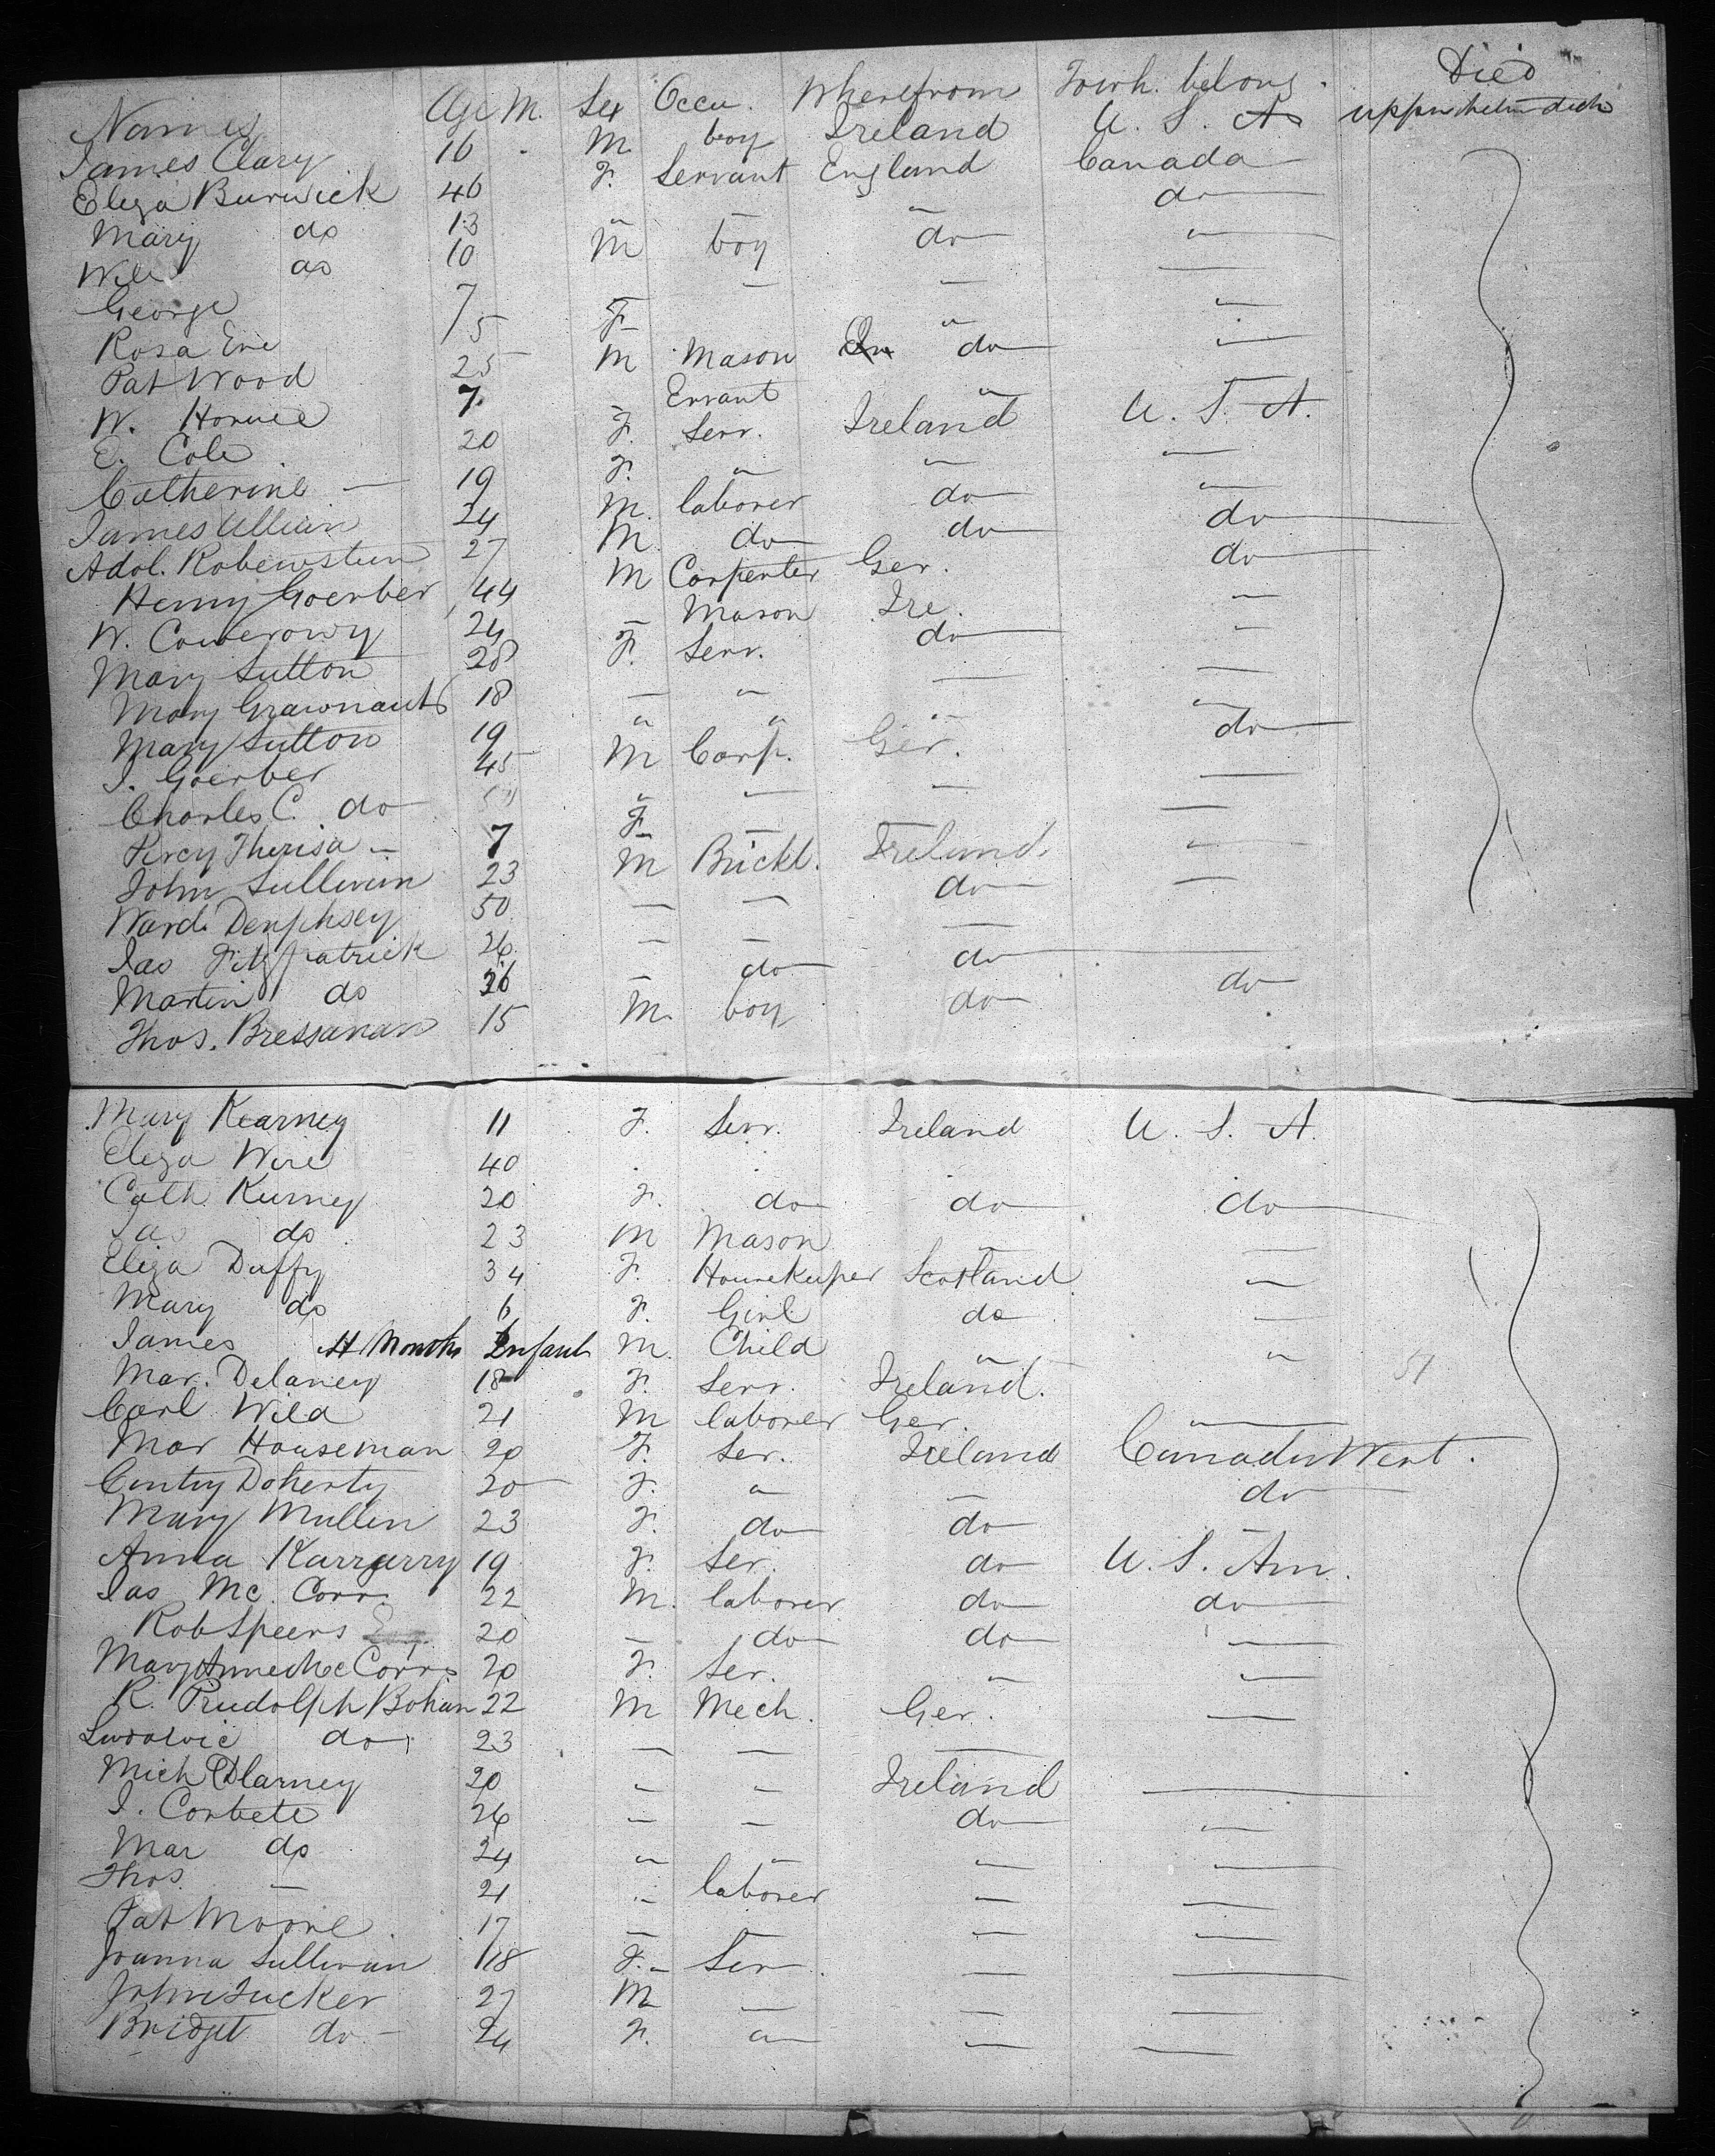 Names Age M. Sex Occu. Wherefrom Towh. belong. Died
James Clary 16 M. boy Ireland U. S. A.
Eliza Burwick 46 F. Servant England Canada
Mary do 13 " — " do
Will do 10 M boy do "
George 7 — — — —
Rosa Eve 5 F " "
Pat Wood 25 M Mason do —
W. 7 — "
E. Cole 20 F. Serv. Ireland U. S. A.
Catherine — 19 F. " " —
James 24 M. laborer do "
Adol. 27 M do do do
Henry Goerber 44 M Carpenter Ger. do
W. 24 — Mason Ire. —
Mary Sutton 28 F. Serv. do —
Mary 18 — " — —
Mary Sutton 19 " " " "
J. Goerber 45 M Carp. Ger. do
Charles C. do " — — —
Percy Therisa — 7 F — — —
John Sullivan 23 M Brickl. Ireland. "
Ward. Demphsey 50 — — do —
Jas Fitzpatrick 26 — — —
Martin do 26 — do do
Thos. Bressanan 15 M. boy do do
Mary Kearney 11 F. Serv. Ireland U. S. A.
Eliza Wire 40 . .
Cath. Kurney 20 F. do do do
Jas do 23 M Mason — —
Eliza Duffy 34 F. Housekeeper Scotland "
Mary do 6 F. Girl do —
James Months Infant M. Child " "
Mar. Delaney 18 F. Serv. Ireland. 51
Carl Wild 21 M laborer Ger. "
Mar Houseman 20 F. Ser. Ireland Canada West.
Doherty 20 F. " — do
Mary Mullen 23 F. do do —
Anna 19 F. Ser. do U. S. Am.
Jas Mc. Corr 22 M. laborer do do
Rob Speers 20 — do do —
Mary Anne Mc Corrs 20 F. Ser. " "
R. Rudolph Bohan 22 M Mech. Ger. —
Ludowic do 23 — — —
Mich 20 — — Ireland —
J. Corbete 26 — — do —
Mar do 24 " " — —
Thos. — 21 " laborer — —
Pat Moore 17 — — —
Joanna Sullivan 18 F. Ser. — —
John Tucker 27 M — — —
Bridget do — 24 F. " — —